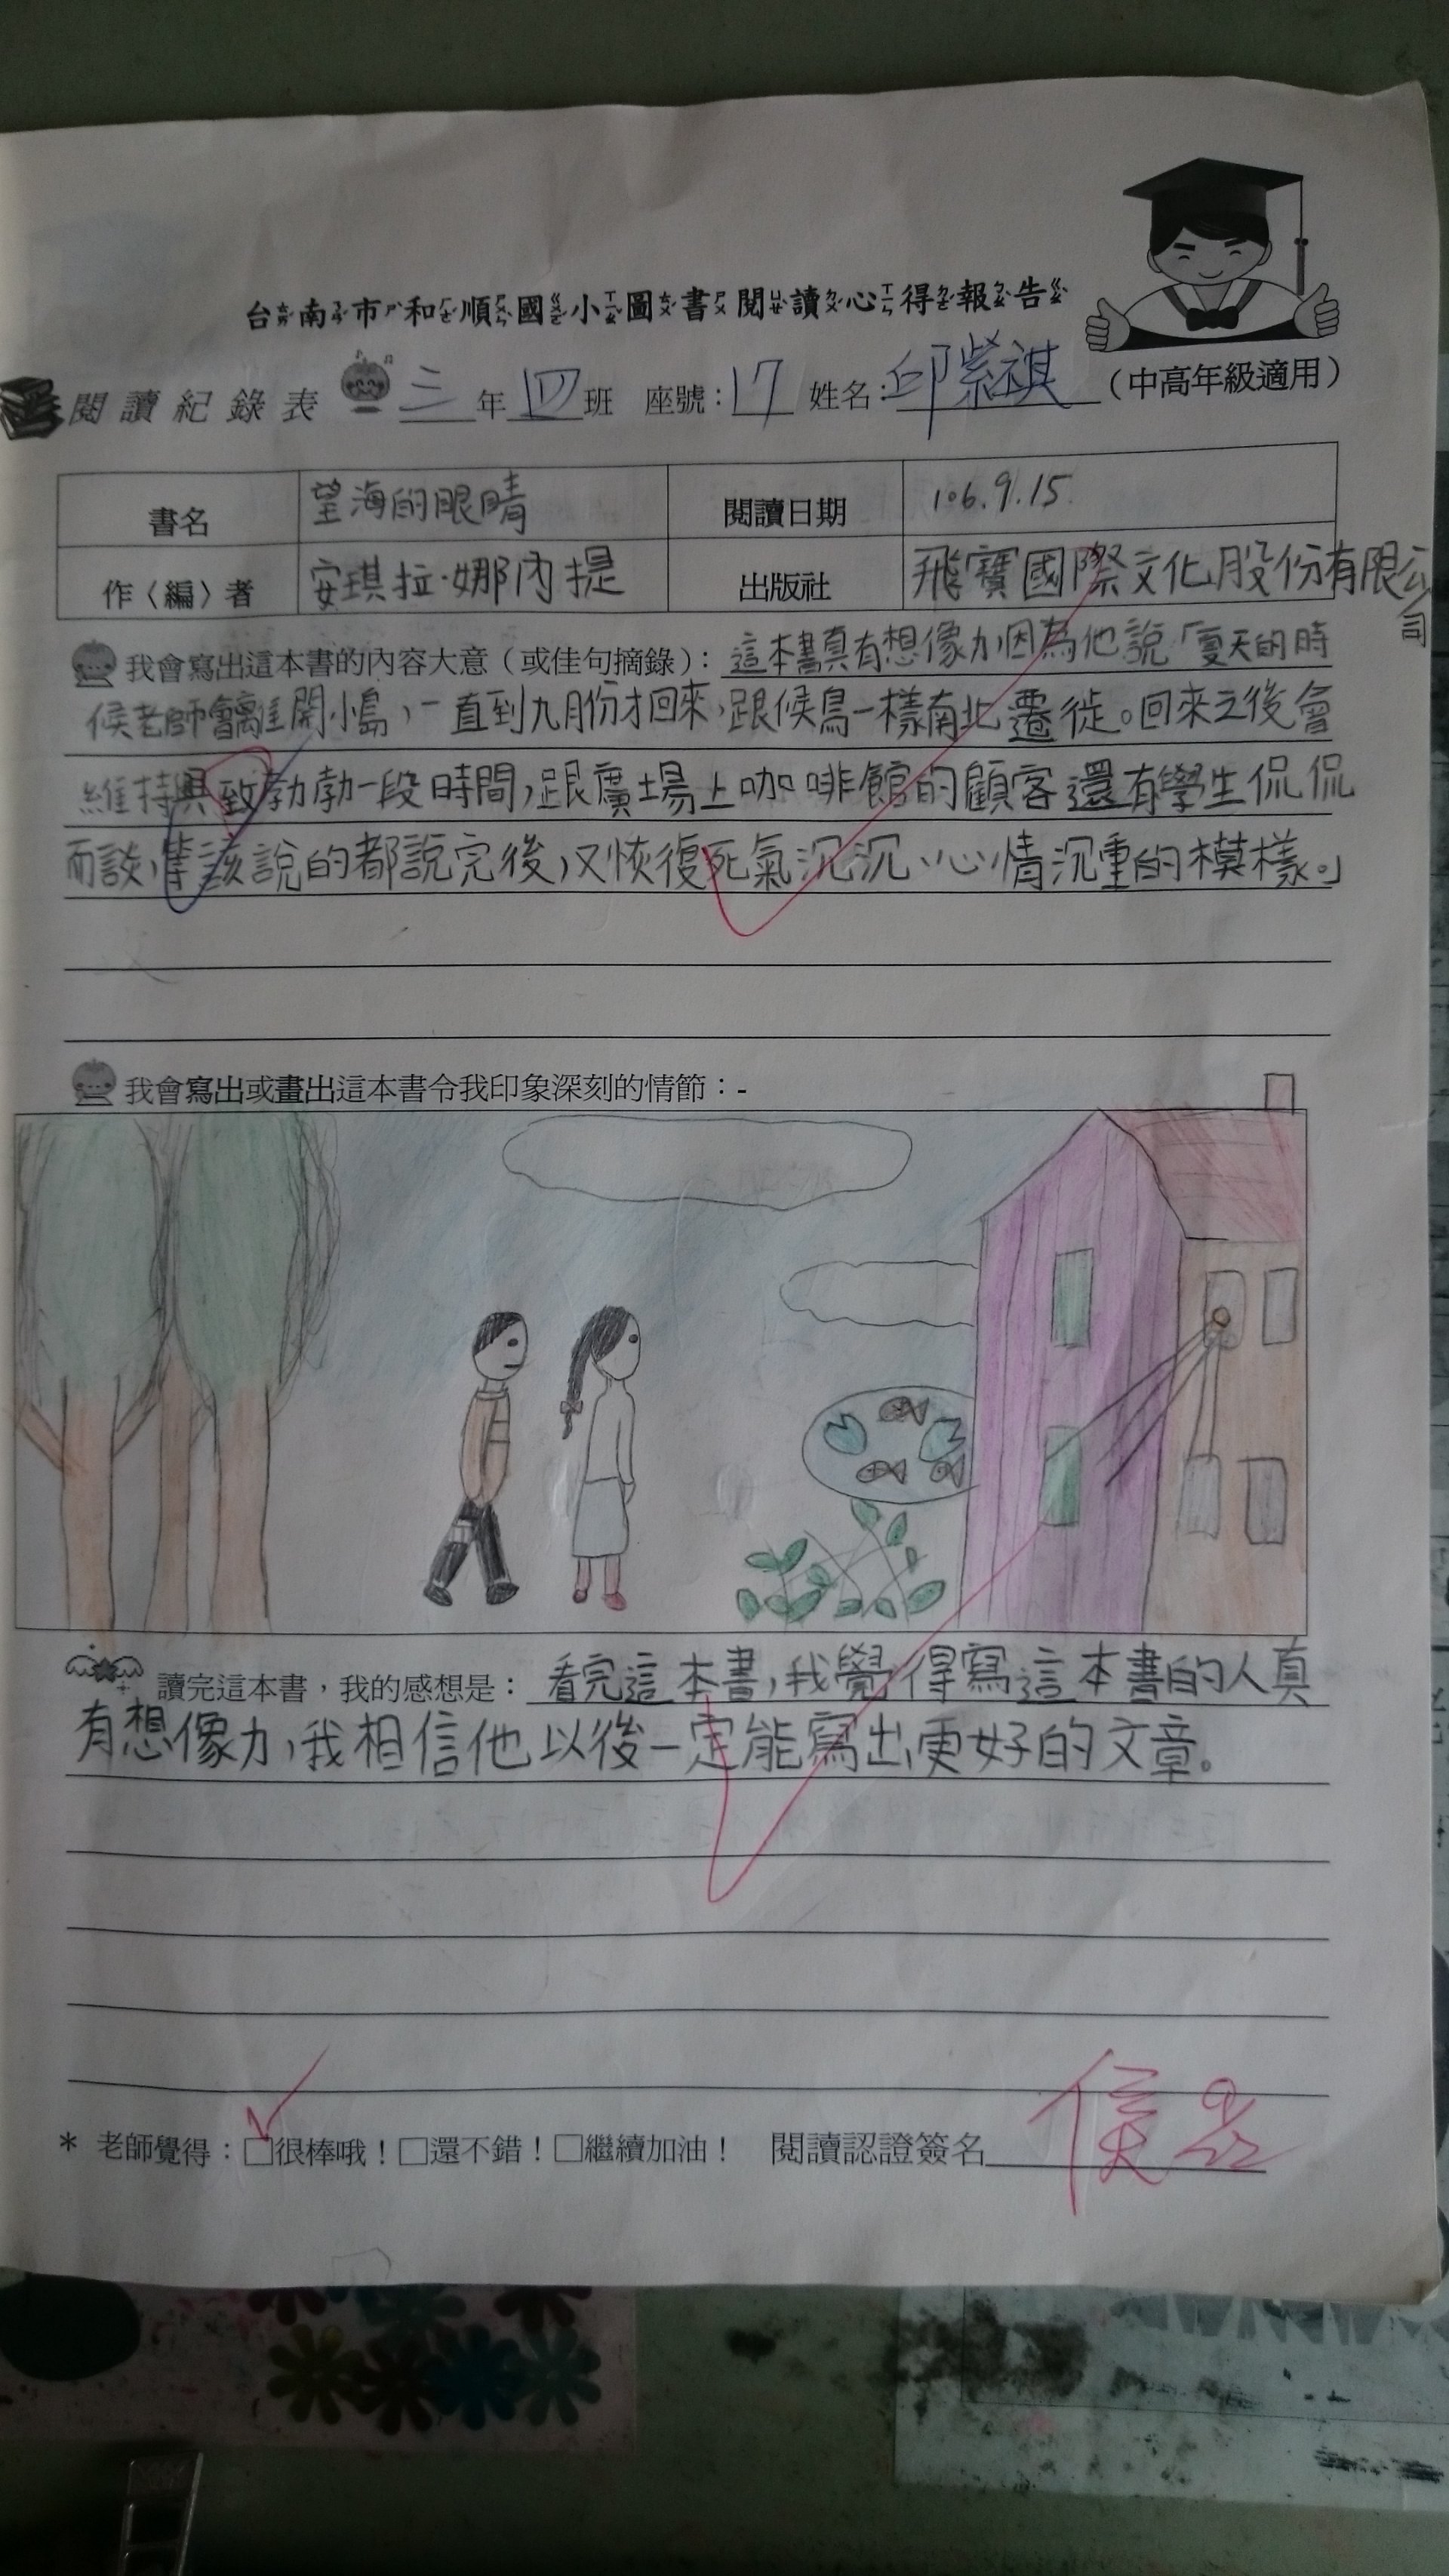 台南市和順國小圖書閱讀心得報告
閱讀紀錄表 三年四班 座號：17 姓名：邱紫祺（中高年級適用）
書名 望海的眼睛 閱讀日期 106.9.15.
作〈編〉者 安琪拉·娜內提 出版社 飛寶國際文化股份有限公司
我會寫出這本書的內容大意（或佳句摘錄）：這本書真有想像力因為他說「夏天的時
候老師會離開小島，一直到九月份才回來，跟候鳥一樣南北遷徙。回來之後會
維持興致勃勃一段時間，跟廣場上咖啡館的顧客還有學生侃侃
而談，等該說的都說完後，又恢復死氣沉沉、心情沉重的模樣。」
我會寫出或畫出這本書令我印象深刻的情節：-
讀完這本書，我的感想是：看完這本書，我覺得寫這本書的人真
有想像力，我相信他以後一定能寫出更好的文章。
* 老師覺得：□很棒哦！□還不錯！□繼續加油！ 閱讀認證簽名